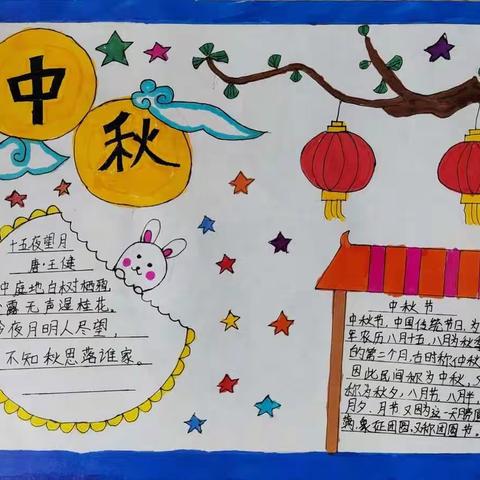 中
秋
十五夜望月
唐·王健
中庭地白树栖鸦,
露无声湿桂花。
夜月明人尽望,
不知秋思落谁家。
中秋节
中秋节,中国传统节日,为
年农历八月十五,八月为秋季
的第三个月,古时称仲秋
因此民间称为中秋,又
称为秋夕,八月节,八月半,
月夕,月节又因为这一天
满,象征团圆,又称团圆节。